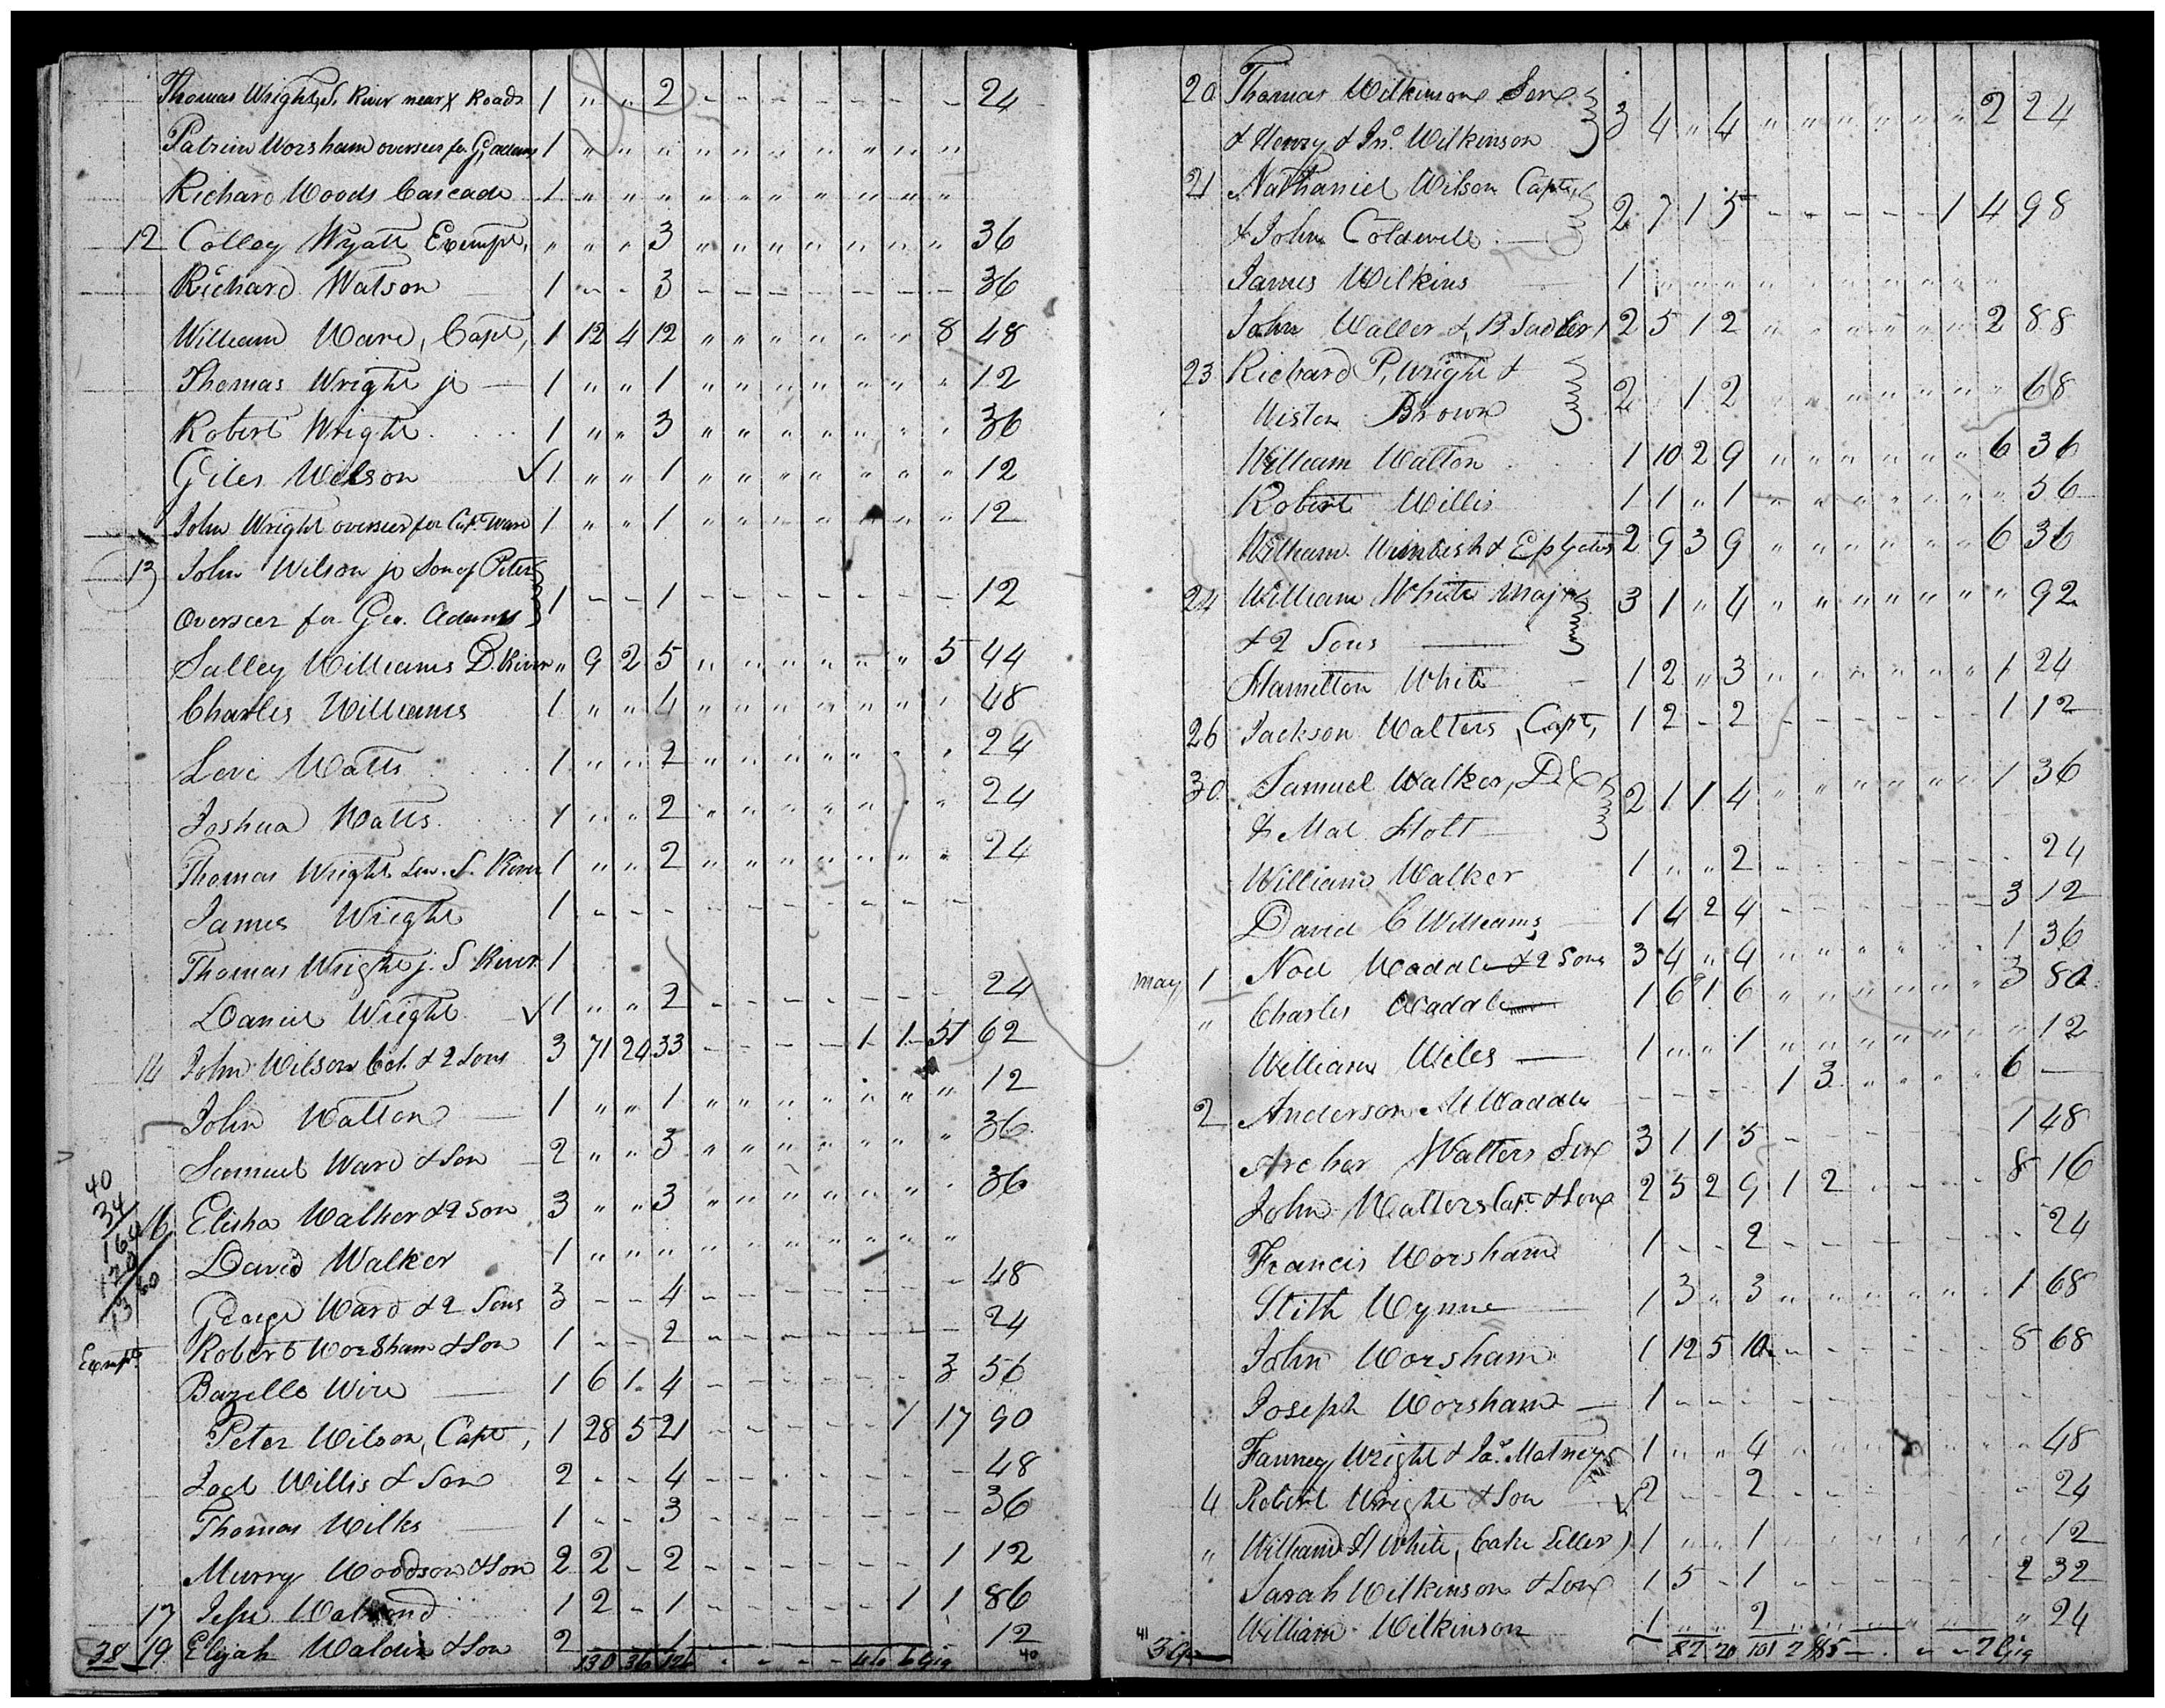 Thomas Wright, S. River near X Roads 1 " " 2 - - - - - - - 24
Patrick Worsham overseer for G, adams 1 " " " " " " " " " "
Richard Woods Cascade 1 " " " " " " " " " "
12 Colley Wyatt Exempt, " " " 3 " " " " " " " 36
Richard Watson 1 - - 3 - - - - - - - 36
William Ware, Capt, 1 12 4 12 " " " " " " 8 48
Thomas Wright jr 1 " " 1 " " " " " " " 12
Robert Wright 1 " " 3 " " " " " " " 36
Giles Wilson √ 1 " " 1 " " " " " " " 12
John Wright overseer for Capt Ware 1 " " 1 " " " " " " " 12
13 John Wilson jr Son of Peter
Overseer for Geo. Adams 1 - - 1 - - - - - - - 12
Salley Williams D. River " 9 2 5 " " " " " " 5 44
Charles Williams 1 " " 4 " " " " " " " 48
Levi Watts 1 " " 2 " " " " " " " 24
Joshua Watts 1 " " 2 " " " " " " " 24
Thomas Wright Sen. S. River 1 " " 2 " " " " " " " 24
James Wright 1 - - - - - - - - - -
Thomas Wright j. S River 1
Daniel Wright √ 1 " " 2 - - - - - - - 24
14 John Wilson Col. & 2 Sons 3 71 24 33 - - - - 1 1 51 62
John Walton 1 " " 1 " " " " " " " 12
Samuel Ward & Son 2 " " 3 " " " " " " " 36
40
34
16 Elisha Walker & 2 Son 3 " " 3 " " " " " " " 36
David Walker 1 " " " " " " " " " "
George Ward & 2 Sons 3 - - 4 - - - - - - - 48
Exempt Robert Worsham & Son 1 - - 2 - - - - - - - 24
Bazelle Wire 1 6 1 4 - - - - - - 3 56
Peter Wilson, Capt, 1 28 5 21 - - - - - 1 17 90
Joel Willis & Son 2 - - 4 - - - - - - - 48
Thomas Wilks 1 - - 3 - - - - - - - 36
Murry Woodson & Son 2 2 - 2 - - - - - - 1 12
17 1 2 - 1 - - - - - 1 1 86
38 19 Elijah Walden & Son 2 1 12
130 36 126 40
20 Thomas Wilkinson Sen
& Henry & Jno. Wilkinson 3 4 " 4 " " " " " " 2 24
21 Nathaniel Wilson Capt,
& John Coldwell 2 7 1 5 - - - - - 1 4 98
James Wilkins 1 " " " " " " " " "
John Waller & B Sadler 2 5 1 2 " " " " " " 2 88
23 Richard P, Wright &
Wistan Brown 2 1 2 " " " " " " " 68
William Walton 1 10 2 9 " " " " " " 6 36
Robert Willis 1 1 " 1 " " " " " " " 56
William Wimbish & Ep Yates 2 9 3 9 " " " " " " 6 36
24 William White Majr
& 2 Sons 3 1 " 4 " " " " " " " 92
Hamilton White 1 2 " 3 " " " " " " 1 24
26 Jackson Walters, Capt, 1 2 - 2 - - - - - - 1 12
30 Samuel Walker, D R
& Mal Holt 2 1 1 4 " " " " " " 1 36
William Walker 1 " " 2 - - - - - - - 24
David C Williams 1 4 2 4 - - - - - - 3 12
May 1 Noel Waddle & 2 Sons 3 4 " 4 " " " " " " 1 36
" Charles Waddle 1 6 1 6 " " " " " " 3 80
William Wiles 1 " " 1 " " " " " " " 12
2 Anderson M Waddle - - - - 1 3 " " " " 6 —
Archer Walters Sen 3 1 1 5 - - - - - - 1 48
John Walters Capt & Son 2 5 2 9 1 2 - - - - 8 16
Francis Worsham 1 - - 2 - - - - - - - 24
Stith Wynne 1 3 " 3 " " " " " " 1 68
John Worsham 1 12 5 10 - - - - - - 8 68
Joseph Worsham 1 - - - - - - - - -
Fanney Wright & Jas. Matney 1 " " 4 " " " " " " " 48
4 Robert Wright & Son √ 2 - - 2 - - - - - - - 24
" William H White, Cake Seller 1 " " 1 " " " " " " " 12
Sarah Wilkinson & Son 1 5 - 1 - - - - - - 2 32
William Wilkinson 1 " " 2 " " " " " " " 24
41
82 20 101 2